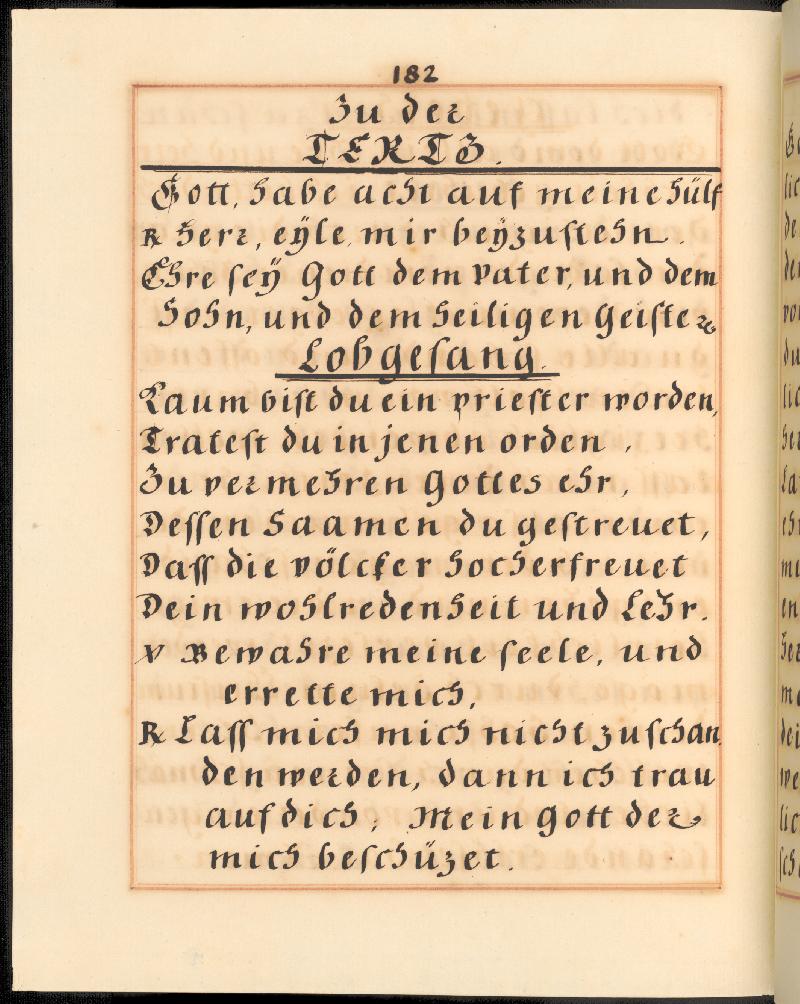 182
Zu der
TERTZ.
Gott, habe acht auf meine hülf
R Herr, eÿle mir beÿzustehn.
Ehre seÿ Gott dem vater, und dem
Sohn, und dem heiligen Geiste
Lobgesang.
Kaum bist du ein priester worden,
Tratest du in jenen orden,
Zu vermehren Gottes ehr,
Dessen Saamen du gestreuet,
Dass die völcker hocherfreuet
Dein wohlredenheit und Lehr.
V Bewahre meine seele, und
errette mich,
R Lass mich mich nicht zuschan
den werden, dann ich trau
auf dich, Mein Gott der
mich beschüzet.